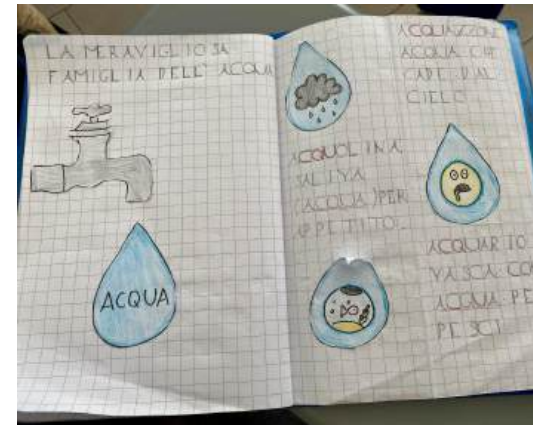 LA MERAVIGLIOSA
FAMIGLIA DELL' ACQUA
ACQUA
ACQUAZZONE
ACQUA CHE
CADE DAL
CIELO
ACQUOLINA
SALIVA
(ACQUA) PER
APPETITO.
ACQUARIO
VASCA CON
ACQUA PE
PESCI